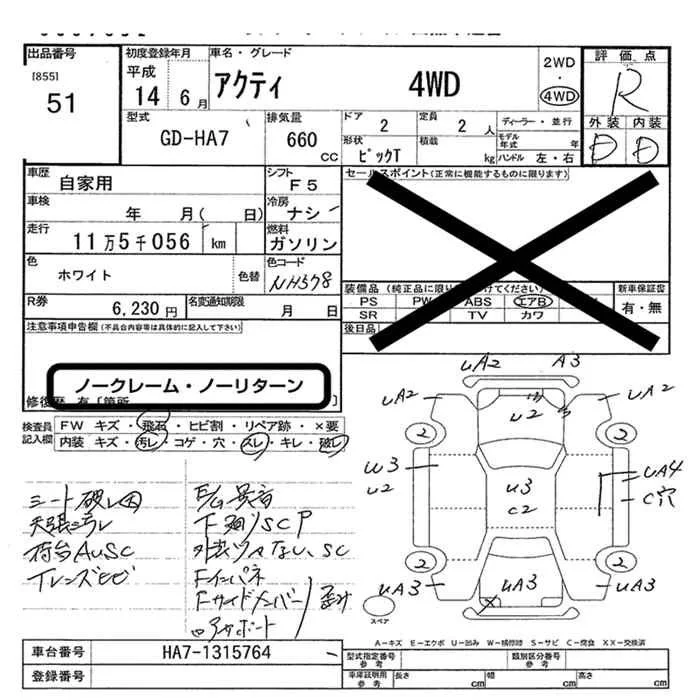 出品番号
[855]
51
初度登録年月
平成
14年 6月
車名・グレード
アクティ 4WD
2WD
・
4WD
評価点
R
外装 内装
D D
型式
GD-HA7
排気量
660 CC
ドア
2
定員
2 人
ディーラー・並行
形状
ピックT
積載
kg
モデル年式 年
ハンドル 左・右
車歴
自家用
シフト
F5
セールスポイント(正常に機能するものに限ります)
車検
年 月( 日)
冷房
ナシ
走行
11万5千056 km
燃料
ガソリン
色
ホワイト
色替
色コード
NH578
R券
6,230円
名変通知期限
月 日
装備品
PS PW ABS エアB
SR TV カワ
新車保証書
有・無
後日品
注意事項申告欄(不具合内容等は具体的に記入して下さい)
ノークレーム・ノーリターン
修復歴 有
検査員記入欄
FW キズ・飛石・ヒビ割・リペア跡・×要
内装 キズ・汚レ・コゲ・穴・スレ・キレ・破レ
シート破レ
天張ヨゴレ
荷台AUSC
下廻リSCP
Fインパネ
Fサイドメンバー
uA2 A3
uA2 u2 uA2
2 2
u3 u3 uA4
u2 C2 C穴
2 2
uA3 uA3 uA3
スペア
A-キズ E-エクボ U-凹み W-補修跡 S-サビ C-腐食 XX-交換済
車台番号
HA7-1315764
登録番号
型式指定番号
参考
類別区分番号
参考
車庫証明用
参考
長さ cm
幅 cm
高さ cm